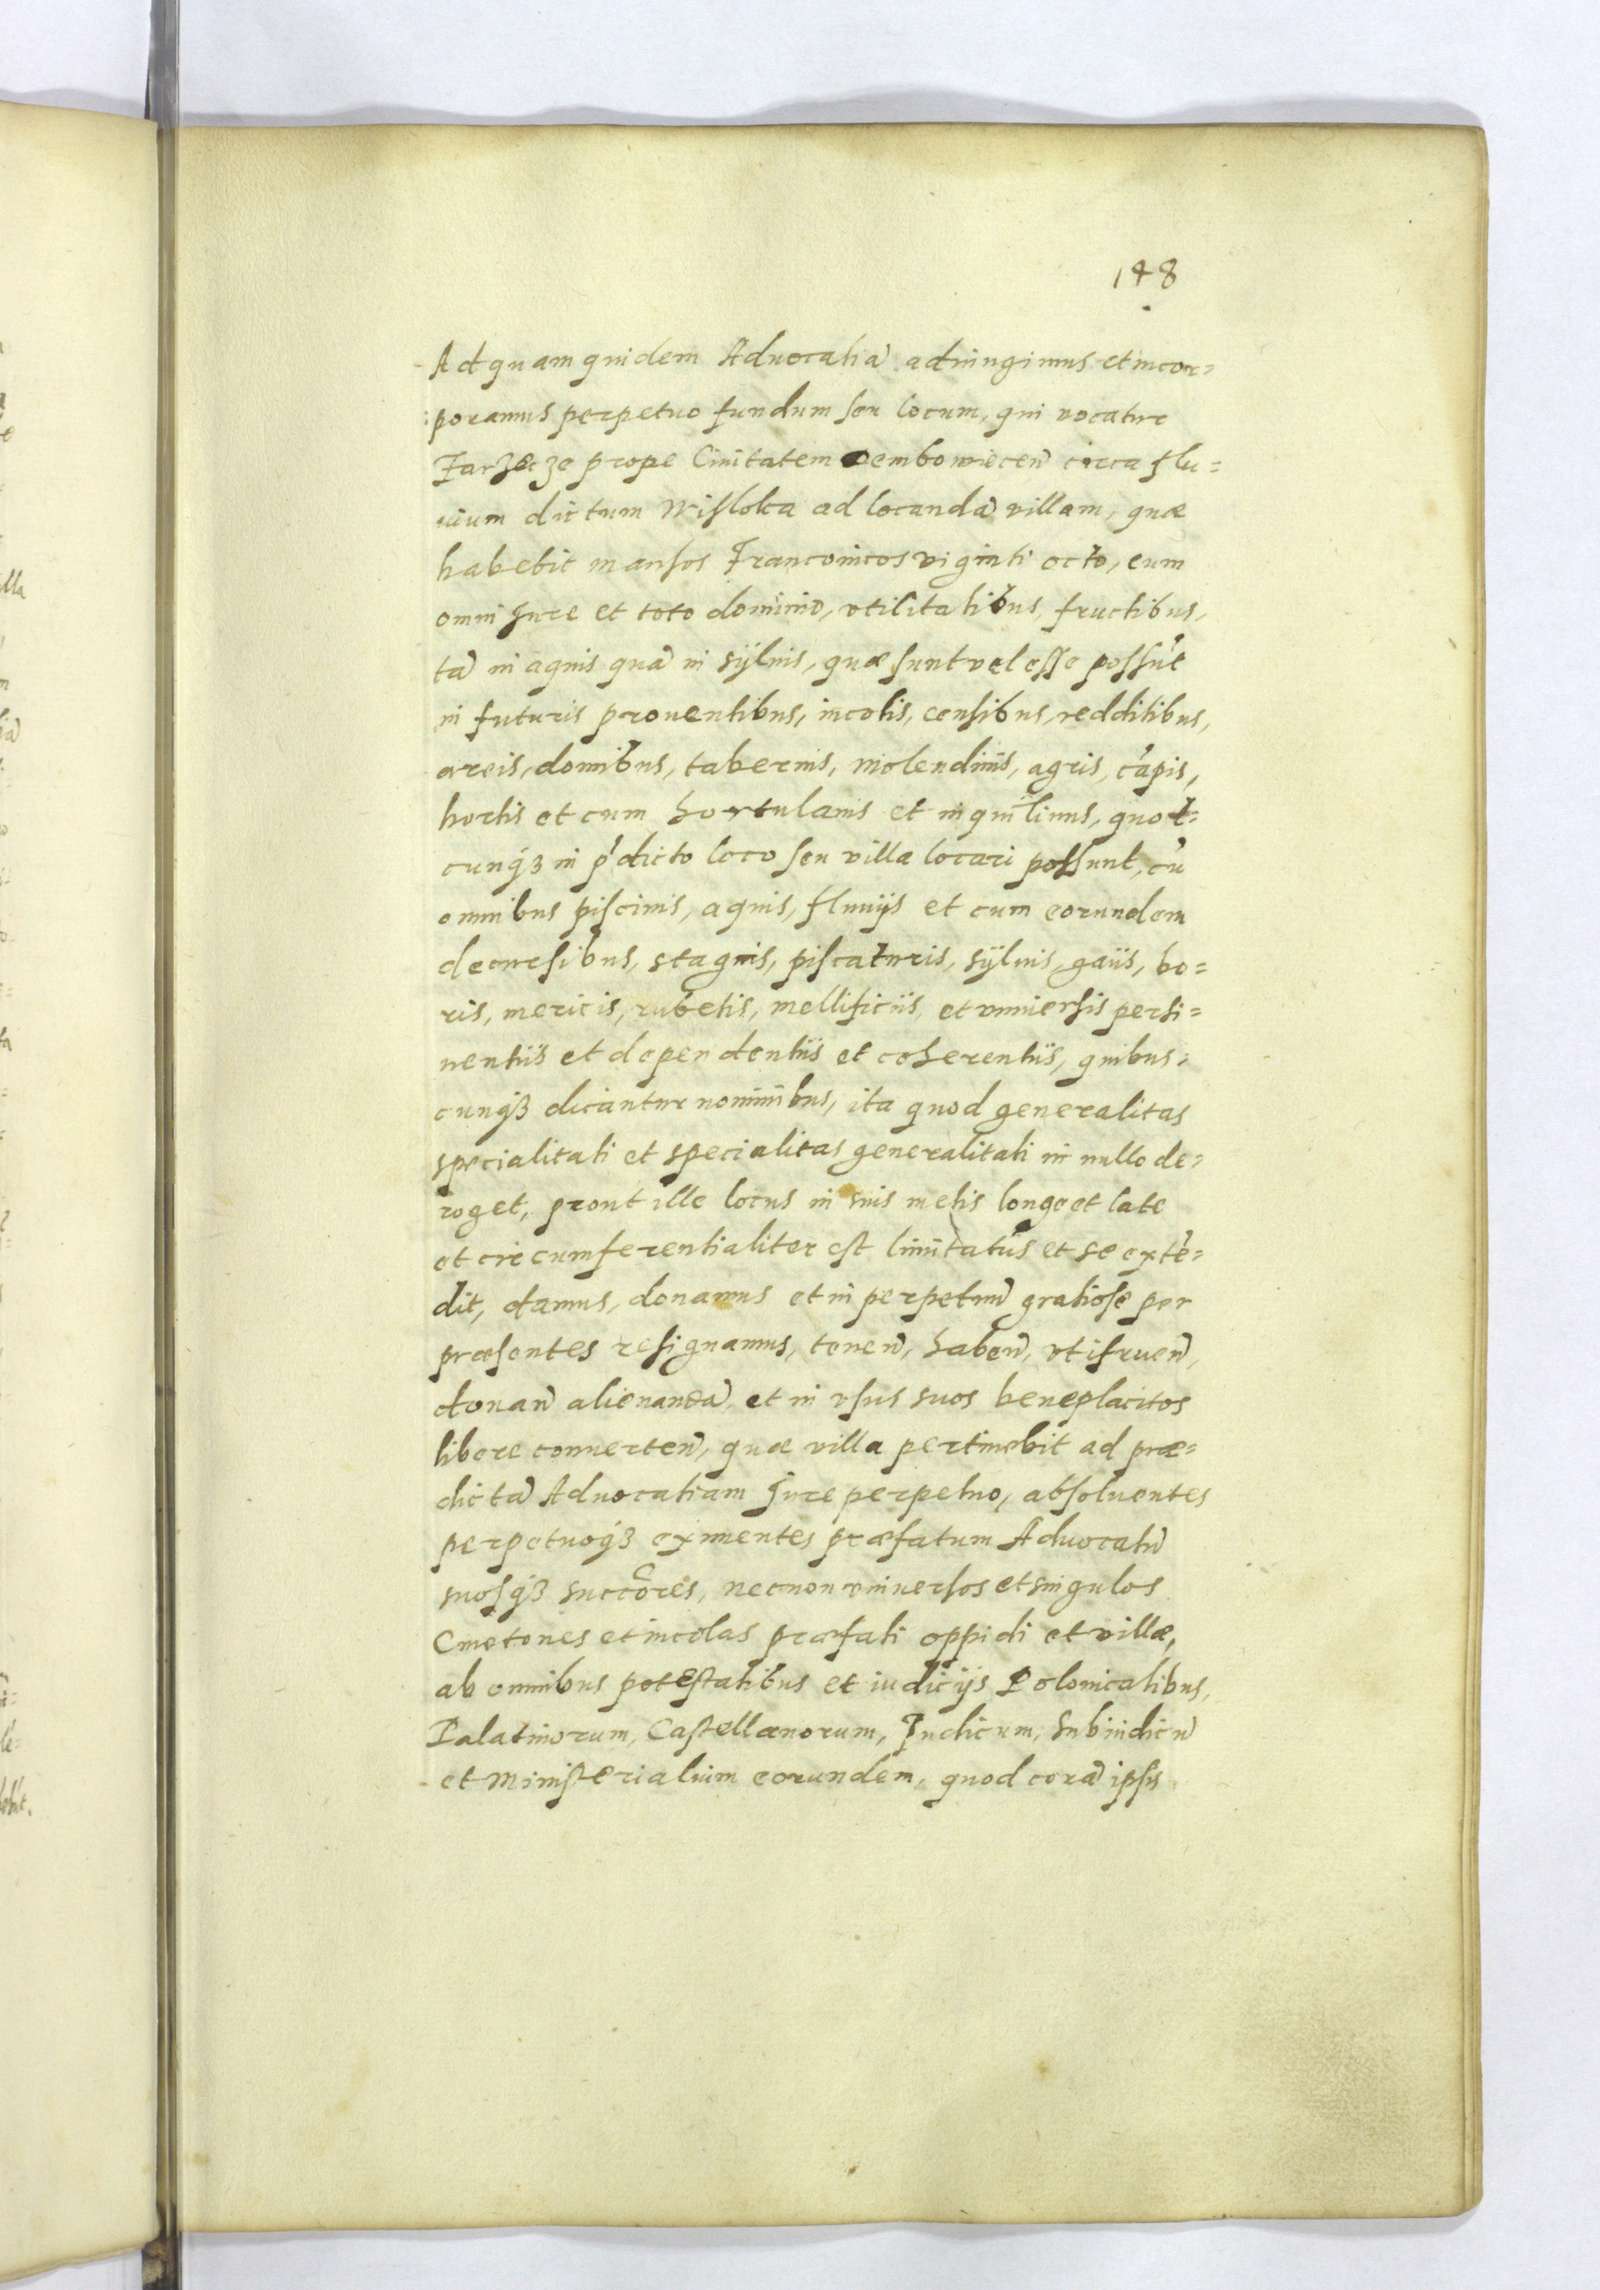 148
Ad quam quidem Aduocatiā adiungimus et incor=
:poramus perpetuo fundum seu locum, qui vocatur
Jarzecze prope Ciuitatem Dembowiecen̄ circa flu=
uium dictum Wisloka ad locandā villam, quæ
habebit mansos Franconicos viginti octo, cum
omni Jure et toto dominio, vtilitatibus, fructibus,
tā in aquis quā in sÿluis, quæ sunt vel esse possūt
in futuris prouentibus, incolis, censibus, redditibus,
areis, domibus, tabernis, molendinis, agris, cāpis,
hortis et cum hortulanis et inquilinis, quot=
cunq₃ in p̄dicto loco seu villa locari possunt, cū
omnibus piscinis, aquis, fluuijs et cum eorundem
decursibus, stagnis, piscaturis, sÿluis, gaiis, bo=
ris, mericis, rubetis, mellificiis, et vniuersis perti=
nentiis et dependentiis et coherentiis, quibus=
cunq₃ dicantur nominibus, ita quod generalitas
specialitati et specialitas generalitati in nullo de=
roget, prout ille locus in suis metis longe et late
et circumferentialiter est limitatus et se extē=
dit, damus, donamus et in perpetuū gratiose per
præsentes resignamus, tenen̄, haben̄, vtifruen̄,
donan̄ alienandā, et in vsus suos beneplacitos
libere conuerten̄, quæ villa pertinebit ad præ=
dictā Aduocatiam Jure perpetuo, absoluentes
perpetuoq₃ eximentes præfatum Aduocatū
suosq₃ succ̄ores, necnon vniuersos et singulos
Cmetones et incolas præfati oppidi et villæ,
ab omnibus potestatibus et iudicijs Polonicalibus,
Palatinorum, Castellanorum, Judicum, Subiudicū
et Ministerialium eorundem, quod corā ipsis